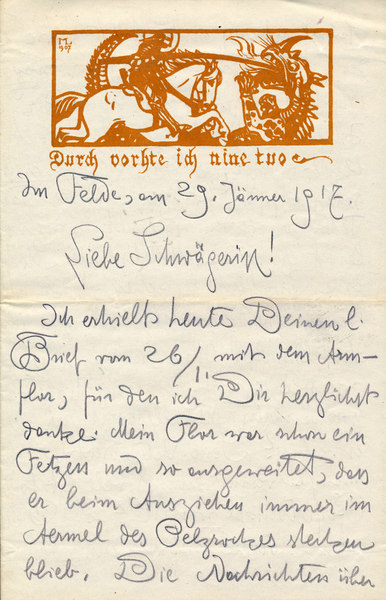 M.
907
Durch vorhte ich nine tuo
Im Felde, am 29. Jänner 1917.
Liebe Schwägerin!
Ich erhielt heute Deinen l.
Brief vom 26/1. mit dem Arm-
flor, für den ich Dir herzlichst
danke. Mein Flor war schon ein
Fetzen und so ausgeweitet, dass
er beim Ausziehen immer im
Aermel des Pelzrockes stecken
blieb. Die Nachrichten über